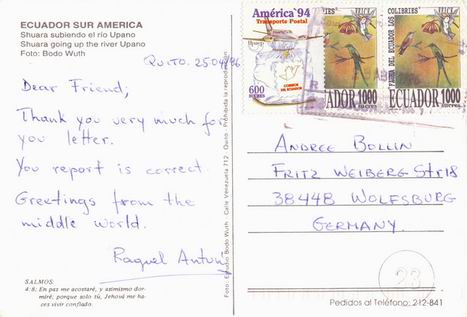 ECUADOR SUR AMERICA
Shuara subiendo el río Upano
Shuara going up the river Upano
Foto: Bodo Wuth
Quito. 25
Dear Friend,
Thank you very much for
you letter.
You report is correct.
Greetings from the
middle world.
Raquel
SALMOS:
4:8: En paz me acostaré, y asimismo dor-
miré; porque solo tú, Jehová me ha-
ces vivir confiado.
Foto: Estudio Bodo Wuth Calle Venezuela 712 Quito - Prohibida la reproducción
América'94
Transporte Postal
600
SUCRES
COLIBRIES
ADOR 1000
SUCRES
DEL ECUADOR LOS COLIBRIES
ECUADOR 1000
SUCRES
Andree Bollin
Fritz Weiberg Str 18
38448 Wolfsburg
Germany.
23
Pedidos al Teléfono: 212-841